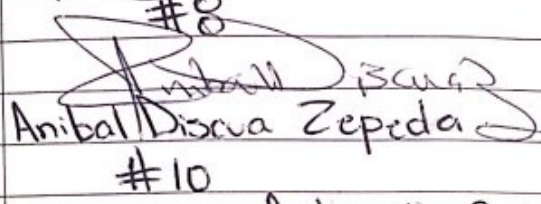 #8
Anibal Discua
Anibal Discua Zepeda
#10